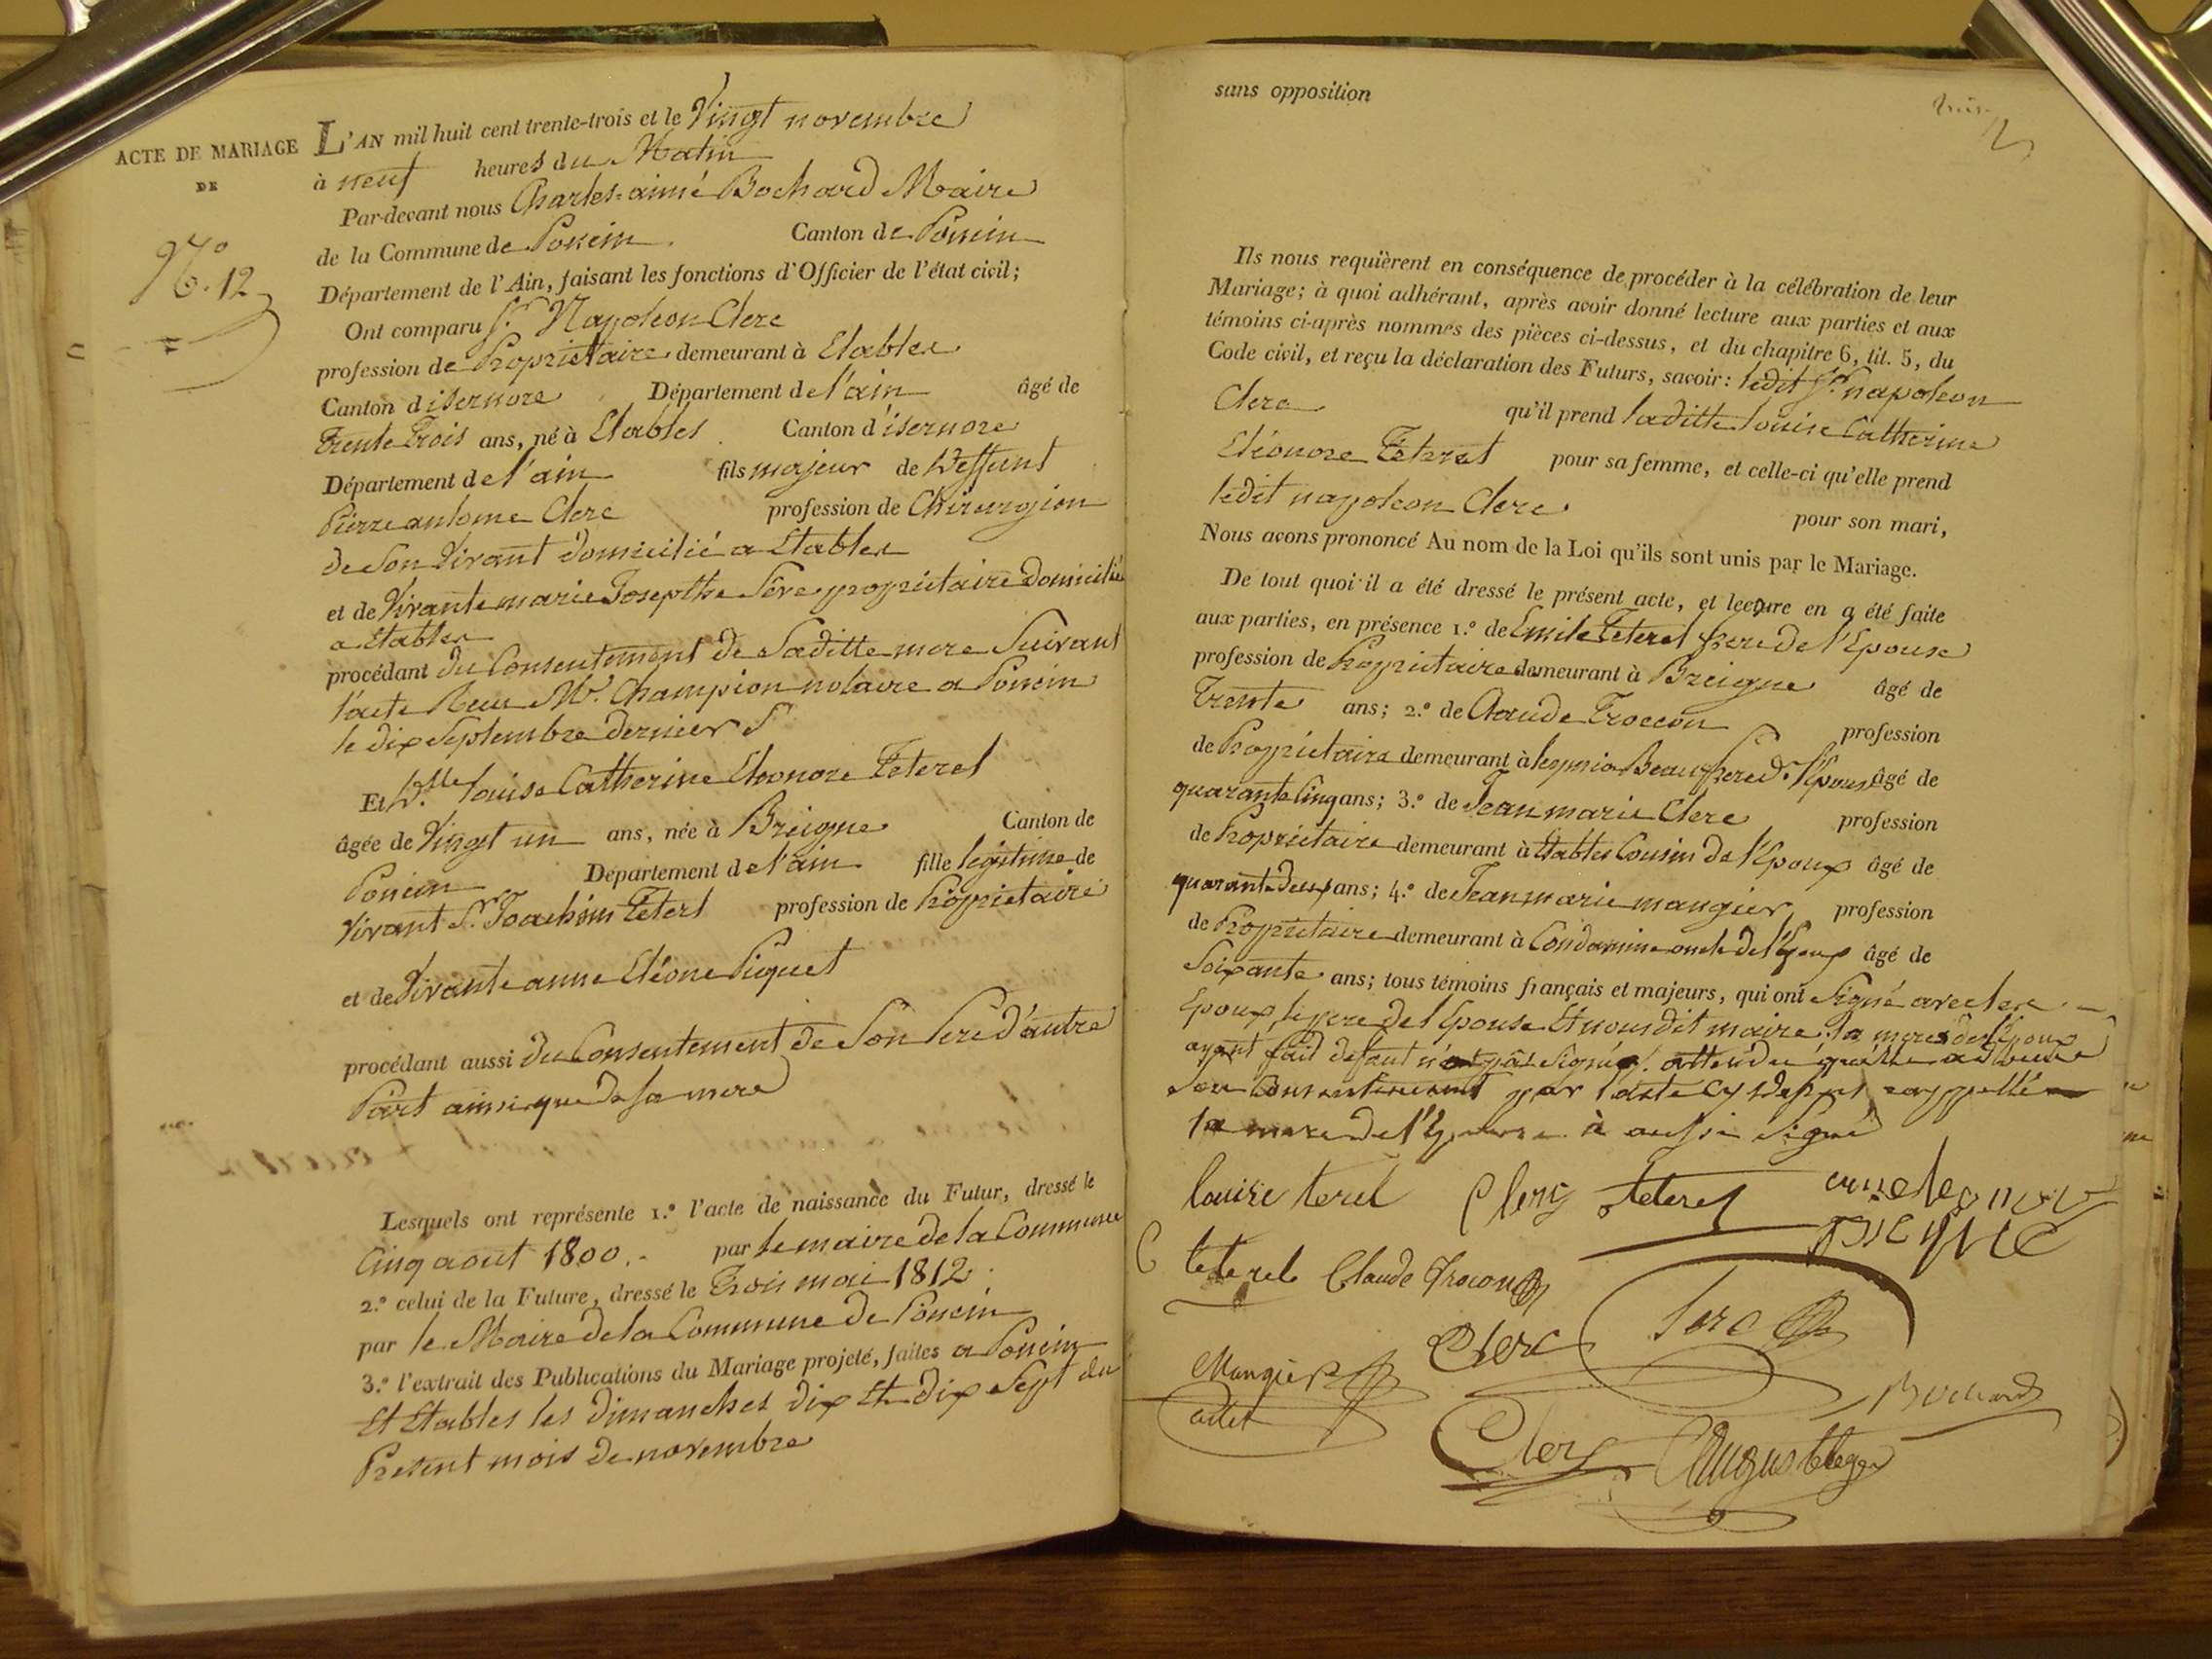 ACTE DE MARIAGE
DE
N.o 12
L'AN mil huit cent trente-trois et le Vingt novembre
à neuf heures du Matin
Par-devant nous Charles-aimé Bochard Maire
de la Commune de Poncin Canton de Poncin
Département de l'Ain, faisant les fonctions d'Officier de l'état civil;
Ont comparu Sr. Napoleon Clerc
profession de Propriétaire demeurant à Etables
Canton d'isernore Département de l'ain âgé de
Trente Trois ans, né à Etables Canton d'isernore
Département de l'ain fils majeur de Deffunt
Pierre antoine Clerc profession de Chirurgion
de son Vivant domicilié a Etables
et de Vivante marie Josepthe Sève propriétaire domicilié
a Etables
procédant du Consentement de Saditte mere Suivant
l'acte Recu Mr. Champion notaire a Poncin
le dix Septembre dernier
Et Dlle louise Catherine Eleonore Teterel
âgée de Vingt un ans, née à Breigne Canton de
Poncin Département de l'ain fille légitime de
Vivant Sr. Joachim Teterl profession de Propriétaire
et de Vivante anne Eléone Piquet
procédant aussi du Consentement de Son Père d'autre
Part ainsi que de sa mere
Lesquels ont représenté 1.o l'acte de naissance du Futur, dressé le
Cinq aout 1800. par le maire de la Commune
2.o celui de la Future, dressé le Trois mai 1812
par le Maire de la Commune de Poncin
3.o l'extrait des Publications du Mariage projeté, faites a Poncin
et Etables les dimanches dix et dix Sept du
Présent mois de novembre
sans opposition
Ils nous requièrent en conséquence de procéder à la célébration de leur
Mariage; à quoi adhérant, après avoir donné lecture aux parties et aux
témoins ci-après nommés des pièces ci-dessus, et du chapitre 6, tit. 5, du
Code civil, et reçu la déclaration des Futurs, savoir: ledit Sr. napoleon
Clerc qu'il prend laditte louise Catherine
Eléonore Teterel pour sa femme, et celle-ci qu'elle prend
ledit napoleon Clerc pour son mari,
Nous avons prononcé Au nom de la Loi qu'ils sont unis par le Mariage.
De tout quoi il a été dressé le présent acte, et lecture en a été faite
aux parties, en présence 1.o de Emile Teterel frere de l'Epouse
profession de Propriétaire demeurant à Breigne âgé de
Trente ans; 2.o de Claude Troccon profession
de Propriétaire demeurant à Beaufrere de l'Epouse âgé de
quarante Cinq ans; 3.o de Jean marie Clerc profession
de Propriétaire demeurant à Etables Cousin de l'Epoux âgé de
quarante deux ans; 4.o de Jean marie mangier profession
de Propriétaire demeurant à Condamine oncle de l'Epoux âgé de
Soixante ans; tous témoins français et majeurs, qui ont Signé avec les
Epoux le pere de l'Epouse Et nous dit maire. la mere de l'Epoux
ayant fait defaut n'a pas Signé attendu qu'elle a donné
son Consentement par l'acte cy dessus rappellé
la mere de l'Epouse à aussi Signé
louise terel Clerc teterel
teterel Claude Trocon
Clerc
Mangier Bochard
Clerc